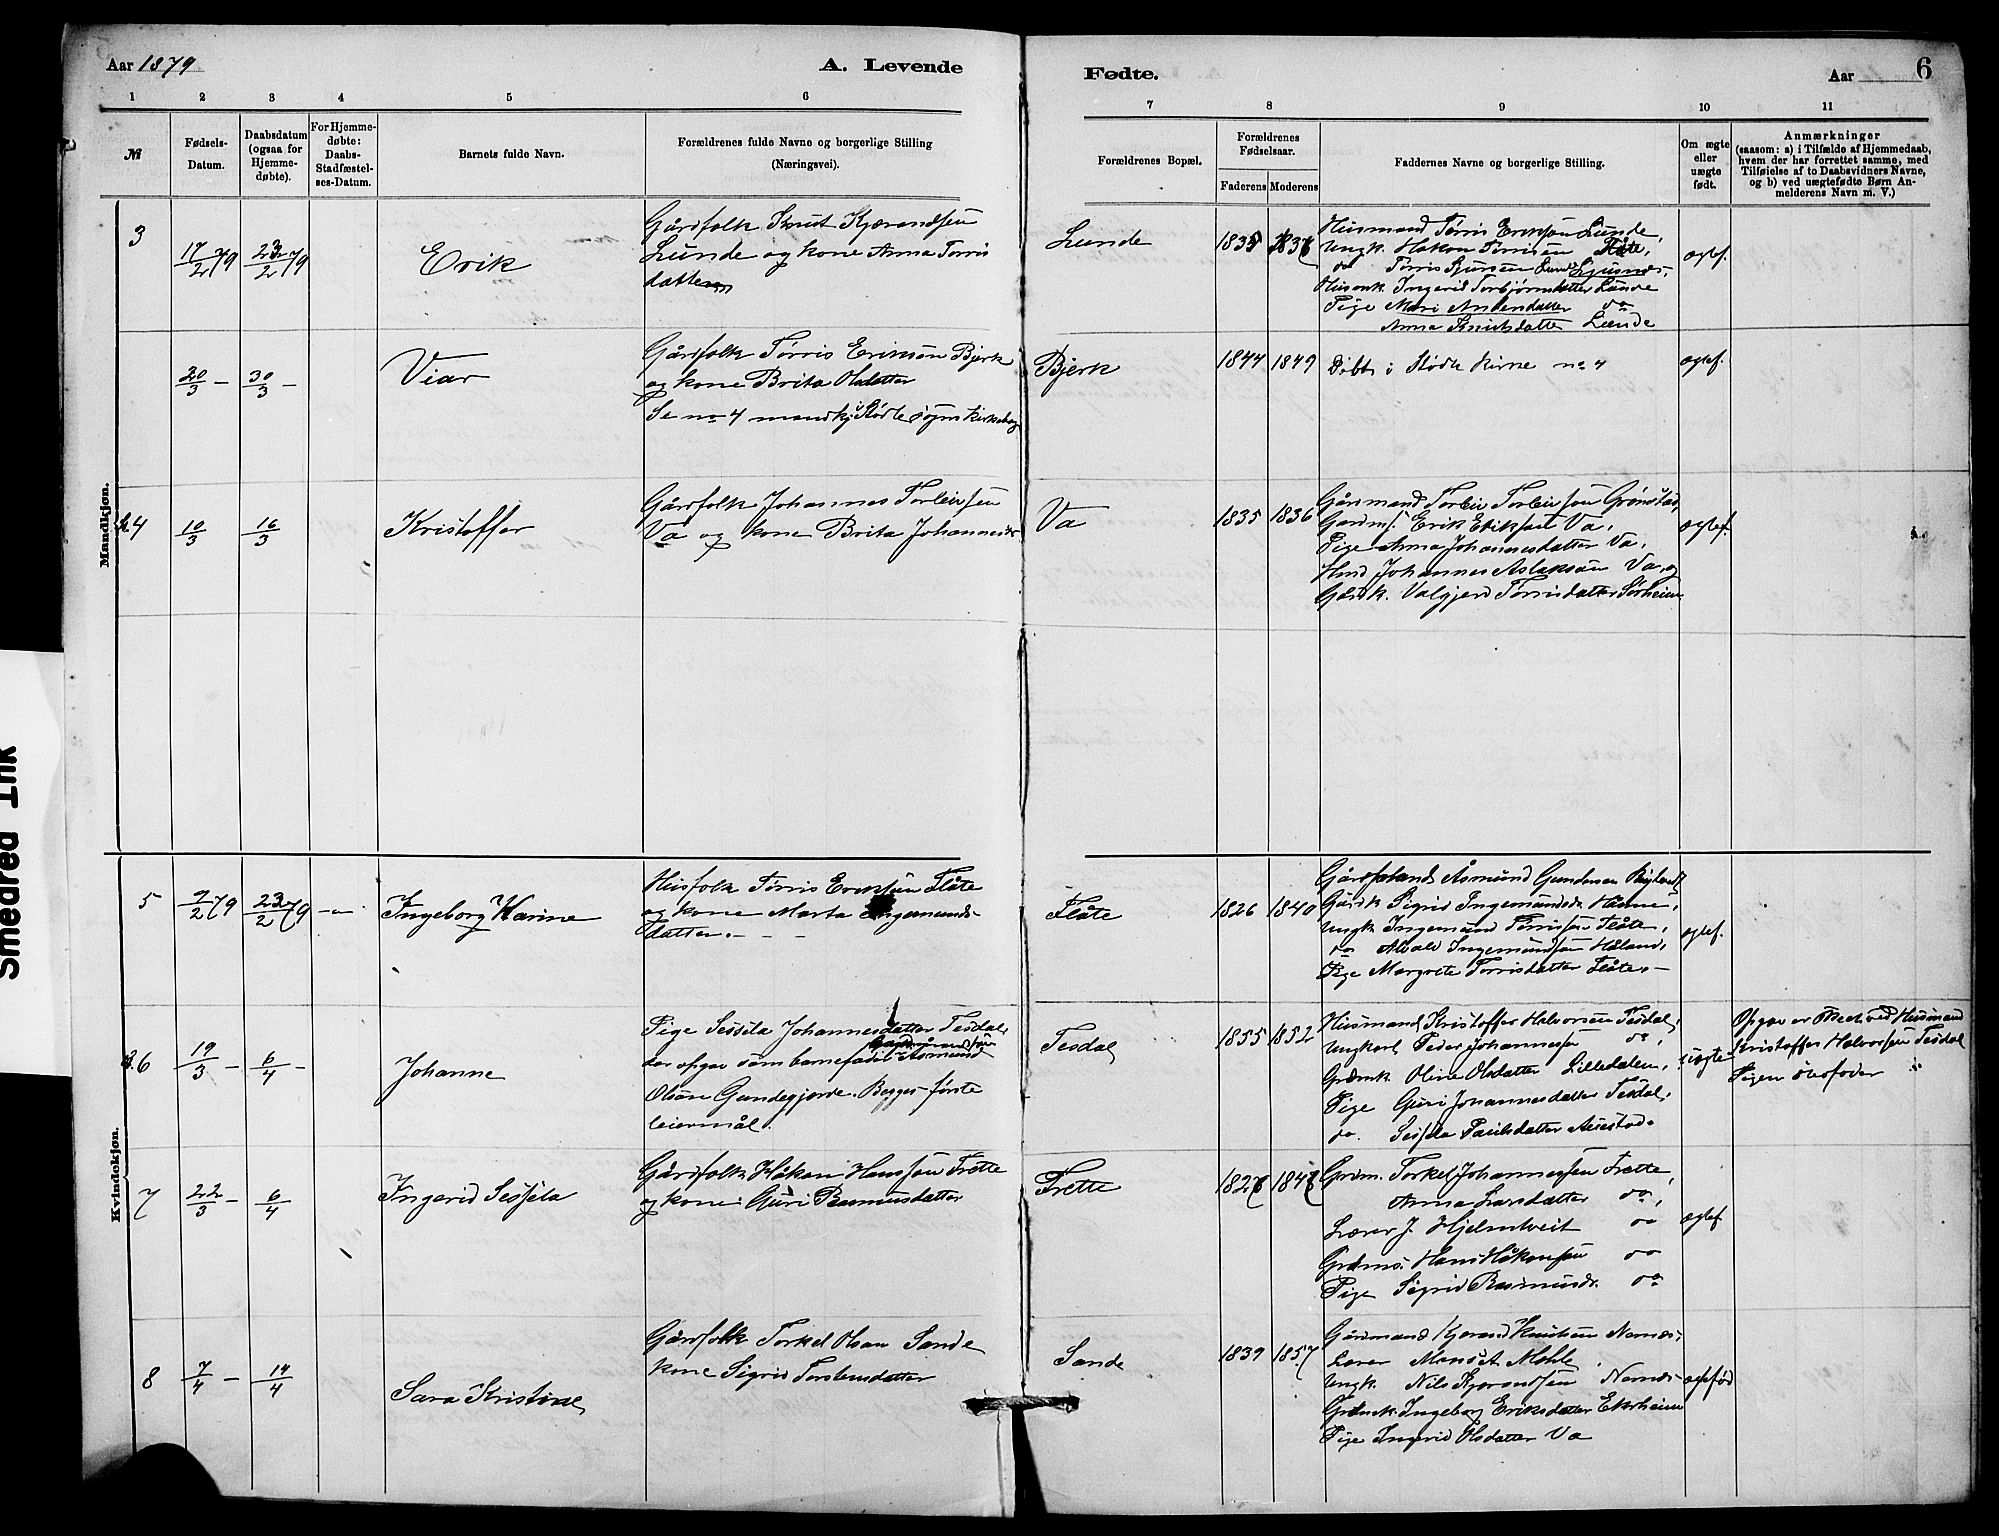 Aar 1879
A. Levende
Fødte.
Aar
6
1 2 3 4 5 6 7 8 9 10 11
№
Fødsels-
Datum.
Daabsdatum
(ogsaa for
Hjemme-
døbte).
For Hjemme-
døbte:
Daabs-
Stadfæstel-
ses-Datum.
Barnets fulde Navn.
Forældrenes fulde Navne og borgerlige Stilling
(Næringsvei).
Forældrenes Bopæl.
Forældrenes
Fødselsaar.
Faderens Moderens
Faddernes Navne og borgerlige Stilling.
Om ægte
eller
uægte
født.
Anmærkninger
(saasom: a) i Tilfælde af Hjemmedaab,
hvem der har forrettet samme, med
Tilføielse af to Daabsvidners Navne,
og b) ved uægtefødte Børn An-
melderens Navn m. V.)
Mandkjøn.
3
17/2 79
23/2 79
Erik
Gårdfolk Knut Kjærandsen
Lunde og kone Anna Torris
datter
Lunde
1835 1837
Husmand Tørris Eriksøn Lunde,
Ungk. Håkon Tørrisen Flåte,
do Tørris Sjursen Lunde
Husmk. Ingerid Torbjørnsdatter Lunde
Pige Mari Andersdatter do
Anna Knutsdatter Lunde
ægtef.
20/3 –
30/3 –
Viar
Gårdfolk Tørris Eriksøn Bjerk
og kone Brita Olsdatter
Se no 4 mandkj i Stødle sogns kirkebog
Bjerk
1844 1849
Døbt i Stødle Kirke no 4
ægtef.
4
10/3
16/3
Kristoffer
Gårdfolk Johannes Torleivsen
Va og kone Brita Johannesdr
Va
1835 1836
Gårdmand Torleiv Torleivsøn Grønstad,
Gardms. Erik Eriksøn Va,
Pige Anna Johannesdatter Va,
Hmd Johannes Aslaksøn Va, og
Gårdk. Valgjerd Tørrisdatter Sørheim
ægtef.
Kvindekjøn.
5
9/2 79
23/2 79
–"–
Ingeborg Karine
Husfolk Tørris Eriksøn Flåte
og kone Marta Ingemunds-
datter. – – –
Flåte
1826 1840
Gårdmand Åsmund Gundersen
Gårdk Sigrid Ingemundsdr Håvne,
Ungk Ingemund Tørrissøn Flåte,
do Ingemundsøn Håland,
Pige Margrete Tørrisdatter Flåte. –
ægtef.
6
19/3 –
6/4 –
Johanne
Pige Sessela Johannesdatter Tesdal,
der opgav som barnefader Åsmund
Olsøn Gundegjerde. Begges første
leiermål.
Tesdal
1855 1852
Husmand Kristoffer Halvorsen Tesdal,
Ungkarl Peder Johannesen do,
Grdmk. Oline Olsdatter Lilledalen,
Pige Guri Johannesdatter Tesdal,
do. Sessela Paulsdatter Auestad.
uægte
Opgav er skeed ved Husmand
Kristoffer Halvorsen Tesdal
Pigen
7
22/3 –
6/4
Ingerid Sessela
Gårdfolk Håkon Hanssøn Frette
og kone: Guri Rasmusdatter
Frette
1827 1847
Grdm. Torkel Johannessen Frette,
Anna Larsdatter do,
Lærer J. Hjelmtveit do
Grdms. Hans Håkonsen do
Pige Sigrid Rasmusdr. do
ægtef
8
7/4 –
14/4
Sara Kristine
Gårdfolk Torkel Olsøn Sande
kone Sigrid Torstensdatter
Sande
1839 1857
Gårdmand Kjerand Knutsen Nornes
Lærer Mons A Mehle,
Ungk. Nils Kjerandsen Nornes
Grdmk. Ingeborg Eriksdatter Ekrheim
Pige Ingerid Olsdatter Va
ægtefød
Smedred Ink